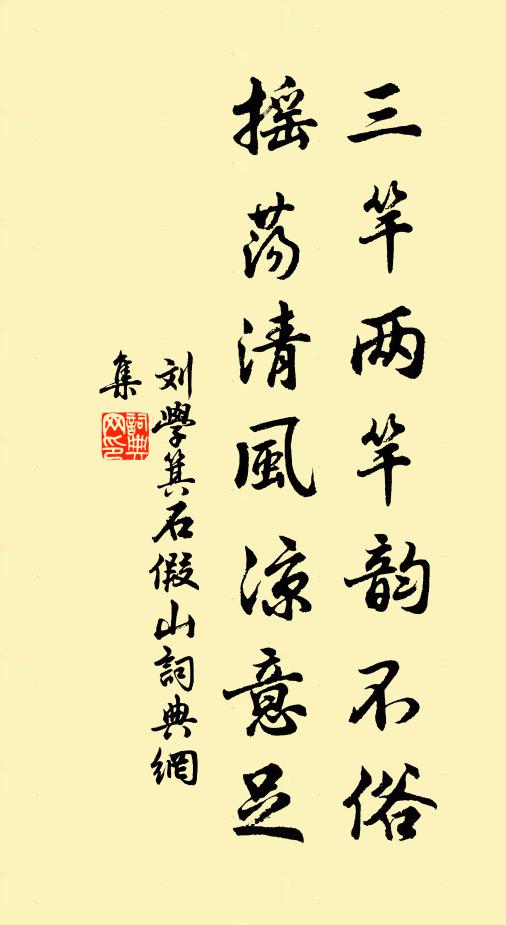 三竿两竿韵不俗
摇荡清风凉意足
刘學箕石假山詞典網
集
詞典网印